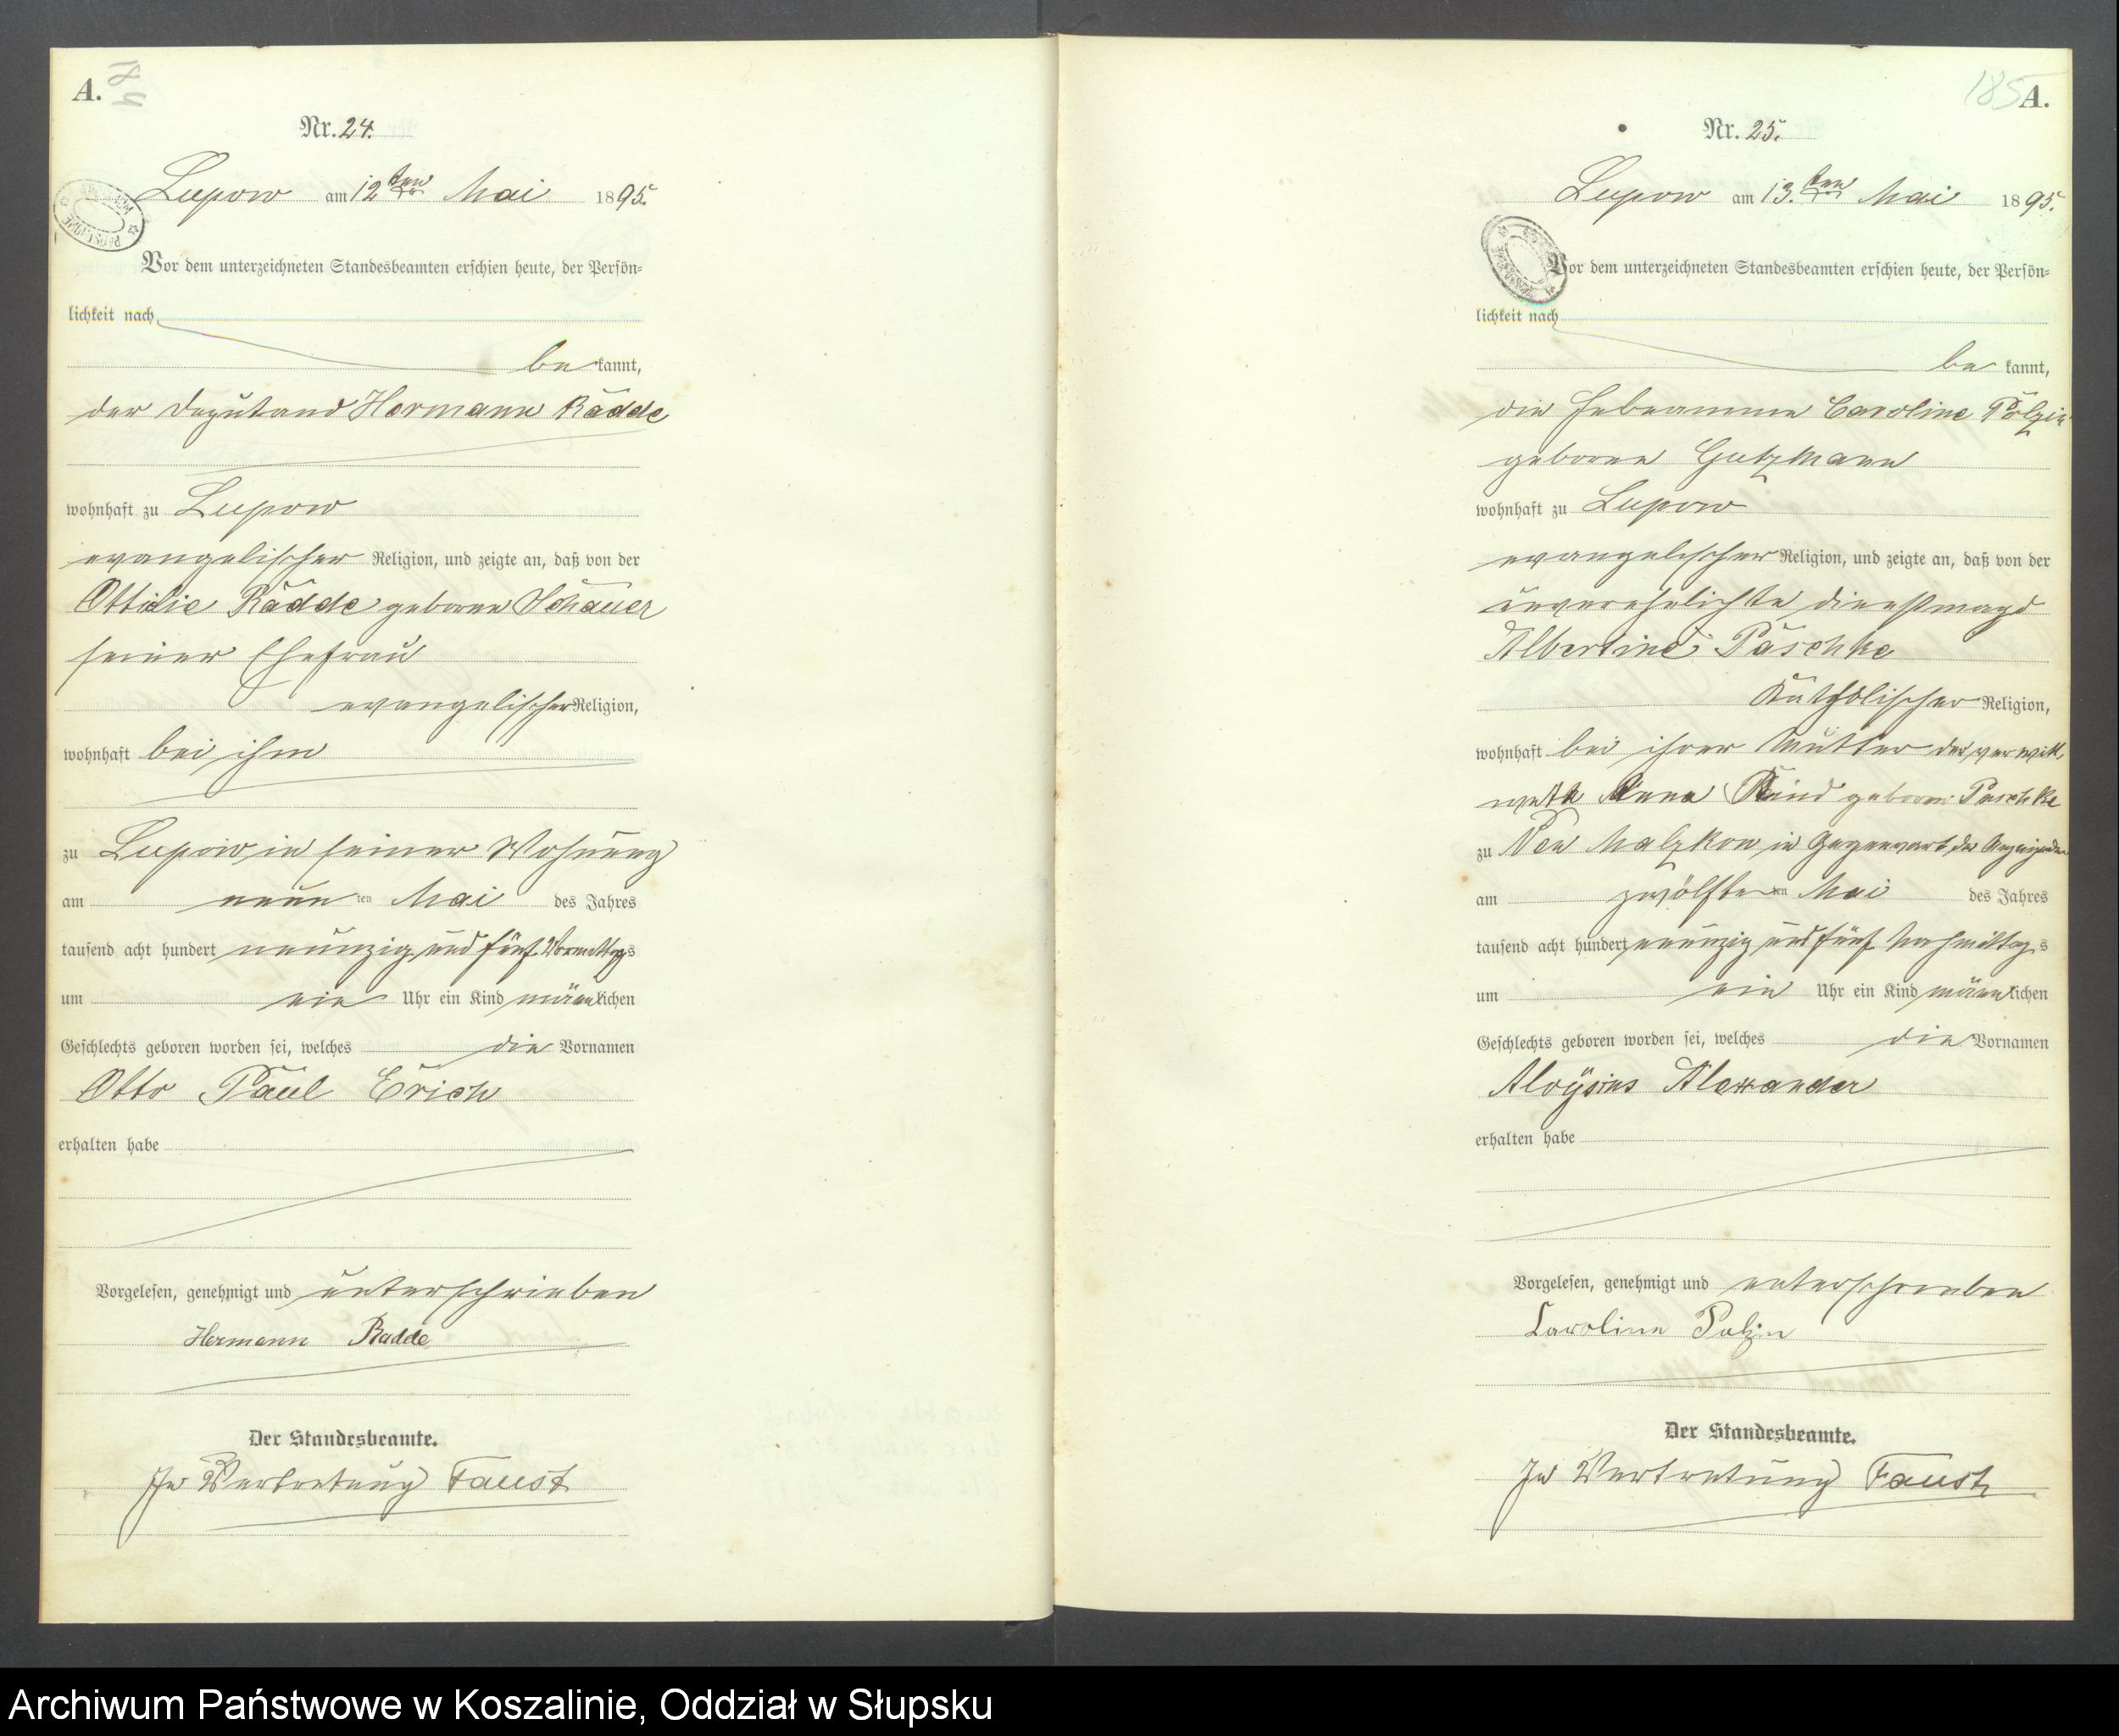 A.
184
Nr. 24.
Lupow am 12ten Mai 1895.
Vor dem unterzeichneten Standesbeamten erschien heute, der Persön=
lichkeit nach
be kannt,
der Deputand Hermann Radde
wohnhaft zu Lupow
evangelischer Religion, und zeigte an, daß von der
Ottilie Radde geborene Schauer
seiner Ehefrau
evangelischer Religion,
wohnhaft bei ihm
zu Lupow in seiner Wohnung
am neun ten Mai des Jahres
tausend acht hundert neunzig und fünf Vormittags
um ein Uhr ein Kind männlichen
Geschlechts geboren worden sei, welches die Vornamen
Otto Paul Erich
erhalten habe
Vorgelesen, genehmigt und unterschrieben
Hermann Radde
Der Standesbeamte.
In Vertretung Faust
185
A.
Nr. 25.
Lupow am 13.ten Mai 1895.
Vor dem unterzeichneten Standesbeamten erschien heute, der Persön=
lichkeit nach
be kannt,
die Hebeamme Caroline Polzin
geborne Gutzmann
wohnhaft zu Lupow
evangelischer Religion, und zeigte an, daß von der
unverehelichte Dienstmagd
Albertine Paschke
Katholischer Religion,
wohnhaft bei ihrer Mutter der verwitt,
wete Anna Kind geboren Paschke
zu Neu Malzkow in Gegenwart der Anzeigenden
am zwölften ten Mai des Jahres
tausend acht hundert neunzig und fünf Nachmittags
um ein Uhr ein Kind männlichen
Geschlechts geboren worden sei, welches die Vornamen
Aloysius Alexander
erhalten habe
Vorgelesen, genehmigt und unterschrieben
Caroline Polzin
Der Standesbeamte.
In Vertretung Faust
Archiwum Państwowe w Koszalinie, Oddział w Słupsku